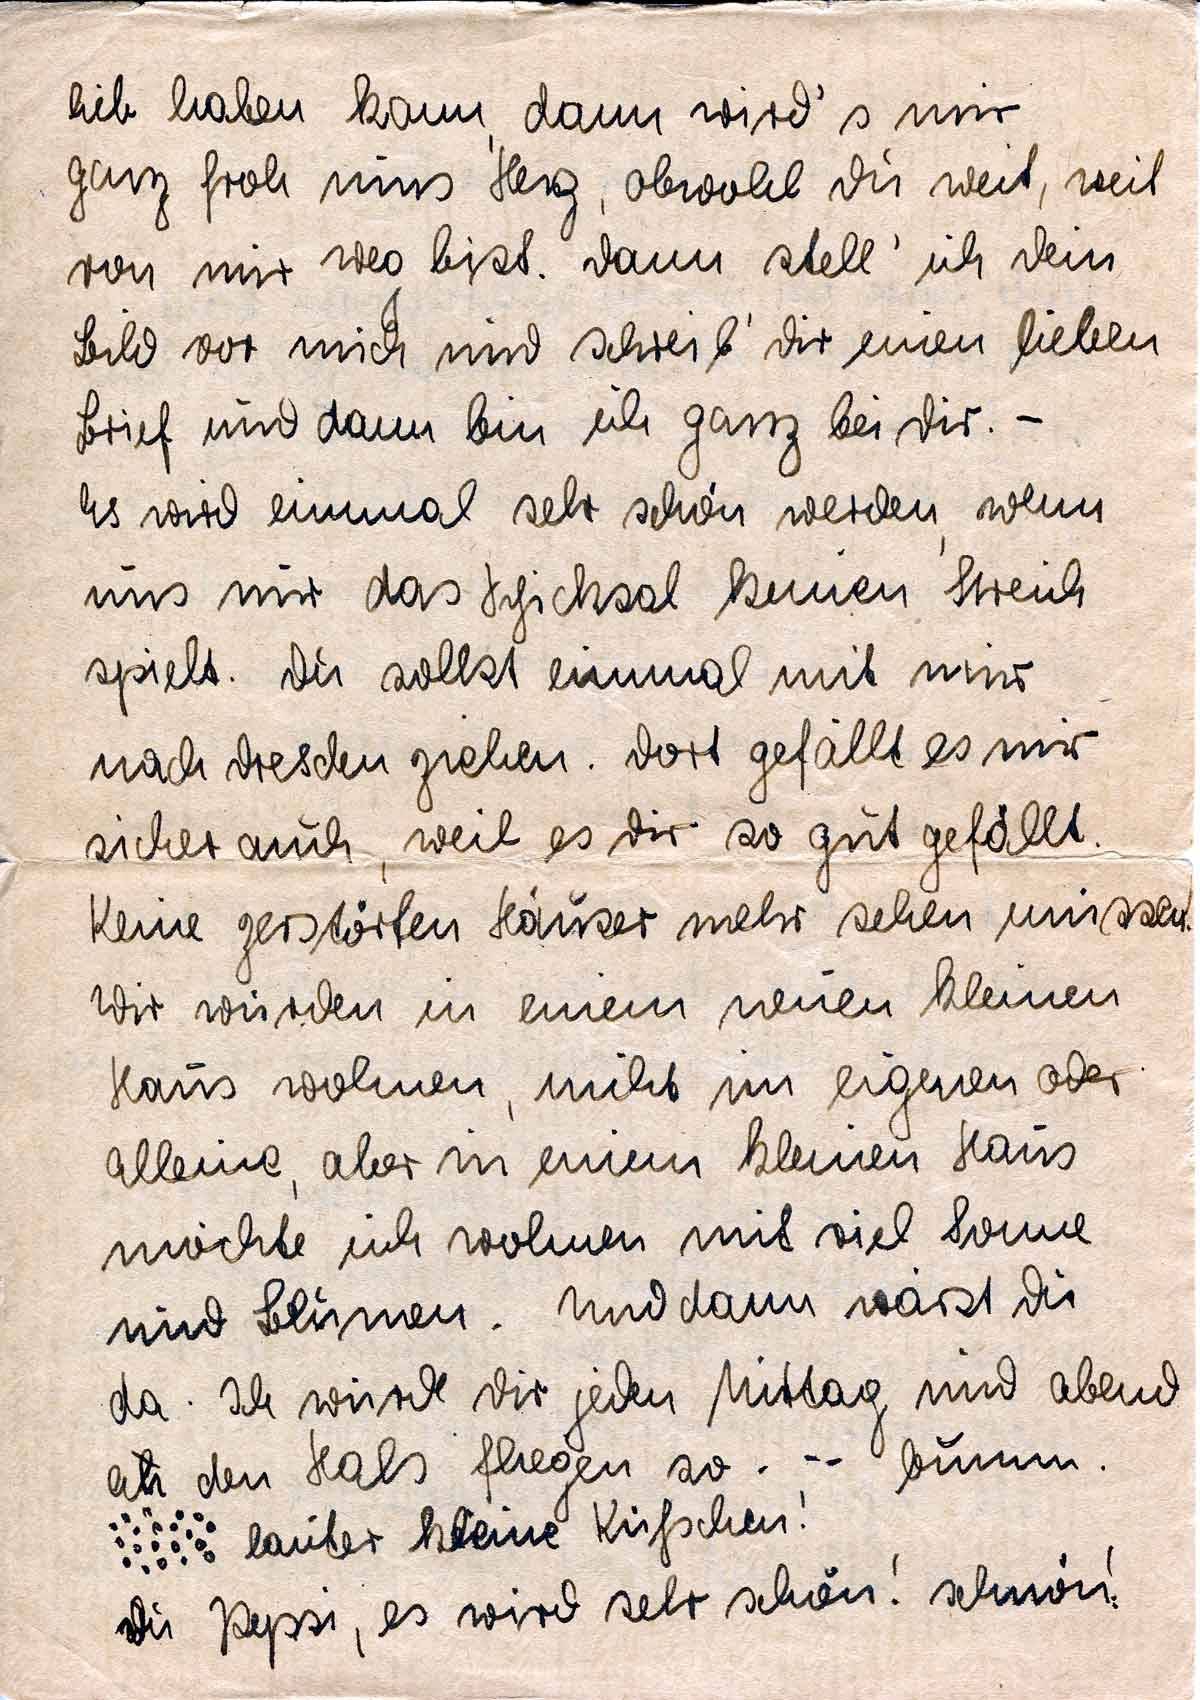 lieb haben kann, dann wird's mir
ganz froh ums Herz, obwohl du weit, weit
von mir weg bist. Dann stell' ich dein
Bild vor mich und schreib' dir einen lieben
Brief und dann bin ich ganz bei dir. –
Es wird einmal sehr schön werden, wenn
uns nur das Schicksal keinen Streich
spielt. Du sollst einmal mit mir
nach Dresden ziehen. Dort gefällt es mir
sicher auch, weil es dir so gut gefällt.
Keine zerstörten Häuser mehr sehen müssen!
Wir würden in einem neuen kleinen
Haus wohnen, nicht im eigenen oder
alleine, aber in einem kleinen Haus
möchte ich wohnen mit viel Sonne
und Blumen. Und dann wärst du
da. Ich würde dir jeden Mittag und abend
an den Hals fliegen so. -- bumm.
lauter kleine Küßchen!
Du Peppi, es wird sehr schön! schön!